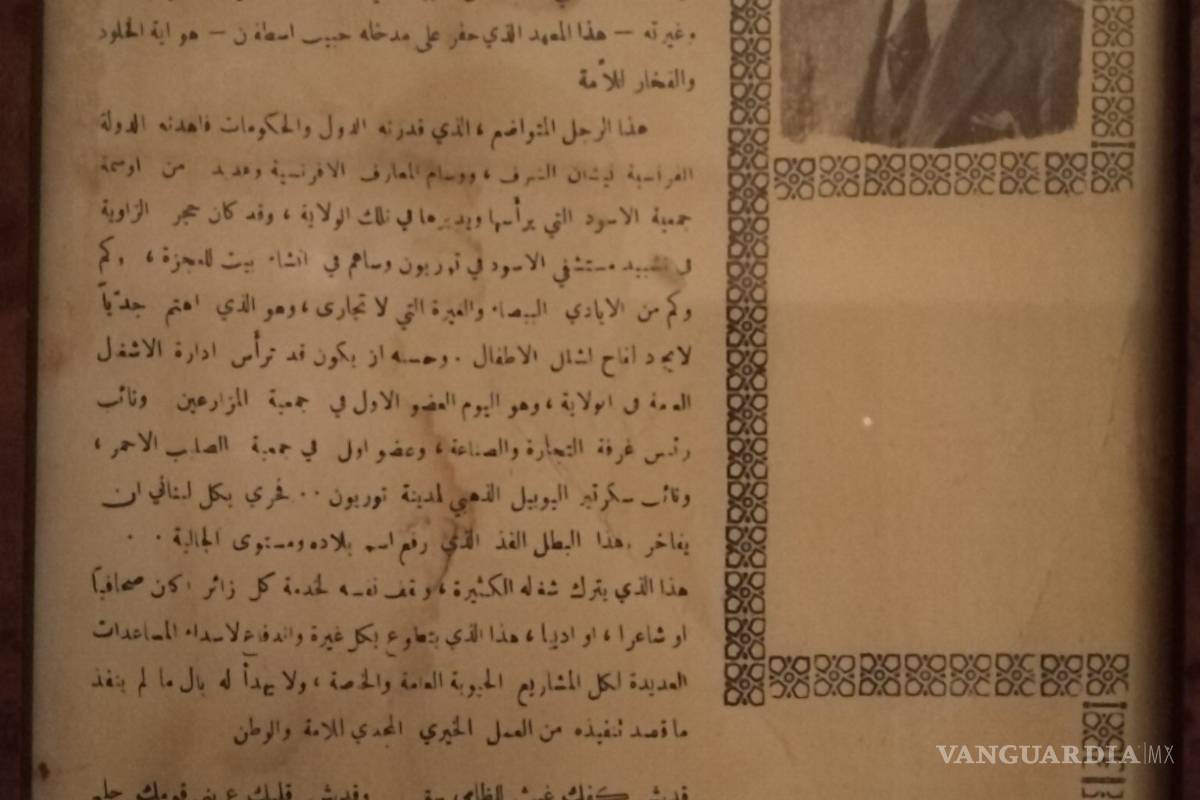 وغيرته — هذا المعهد الذي حفر على مدخله حبيب اسطفان — هو اية الخلود
والفخار للأمة
هذا الرجل المتواضع ، الذي قدرته الدول والحكومات فاهدته الدولة
الفرنسية نيشان الشرف ، ووسام المعارف الافرنسية وعديد من اوسمة
جمعية الاسود التي يرأسها ويديرها في تلك الولاية ، وقد كان حجر الزاوية
في تشييد مستشفى الاسود في توريون وساهم في انشاء بيت للعجزة ، وكم
وكم من الايادي البيضاء والغيرة التي لا تجارى ، وهو الذي اهتم جدّياً
لايجاد لقاح لشلل الاطفال . وحسبه ان يكون قد ترأس ادارة الاشغال
العامة في الولاية ، وهو اليوم العضو الاول في جمعية المزارعين ونائب
رئيس غرفة التجارة والصناعة ، وعضو اول في جمعية الصليب الاحمر ،
ونائب سكرتير اليوبيل الذهبي لمدينة توريون . . فحري بكل لبناني ان
يفاخر بهذا البطل الفذ الذي رفع اسم بلاده ومستوى الجالية . .
هذا الذي يترك شغله الكثيرة ، ويقف نفسه لخدمة كل زائر اكان صحافياً
او شاعرا ، او اديبا ، هذا الذي يتطوع بكل غيرة واندفاع لاسداء المساعدات
العديدة لكل المشاريع الحيوية العامة والخاصة ، ولا يهدأ له بال ما لم ينفذ
ما قصد تنفيذه من العمل الخيري المجدي للامة والوطن
VANGUARDIA|MX